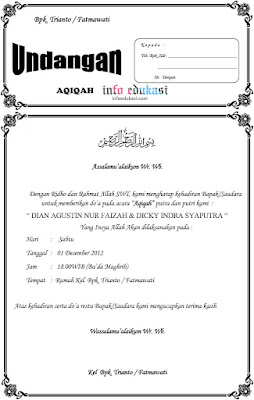 Bpk Trianto / Fatmawati
Undangan
AQIQAH info edukasi
infoedukasi.com
Kepada :
Yth. Bpk /Sdr
Di Tempat
بسم الله الرحمن الرحيم
Assalamu'alaikum Wr. Wb.
Dengan Ridho dan Rahmat Allah SWT, kami mengharap kehadiran Bapak/Saudara
untuk memberikan do'a pada acara "Aqiqah" putra dan putri kami :
" DIAN AGUSTIN NUR FAIZAH & DICKY INDRA SYAPUTRA "
Yang Insya Allah Akan dilaksanakan pada :
Hari : Sabtu
Tanggal : 01 Desember 2012
Jam : 18.00WIB (Ba'da Maghrib)
Tempat : Rumah Kel. Bpk Trianto / Fatmawati
Atas kehadiran serta do'a restu Bapak/Saudara kami mengucapkan terima kasih
Wassalamu'alaikum Wr. Wb.
Kel Bpk. Trianto / Fatmawati